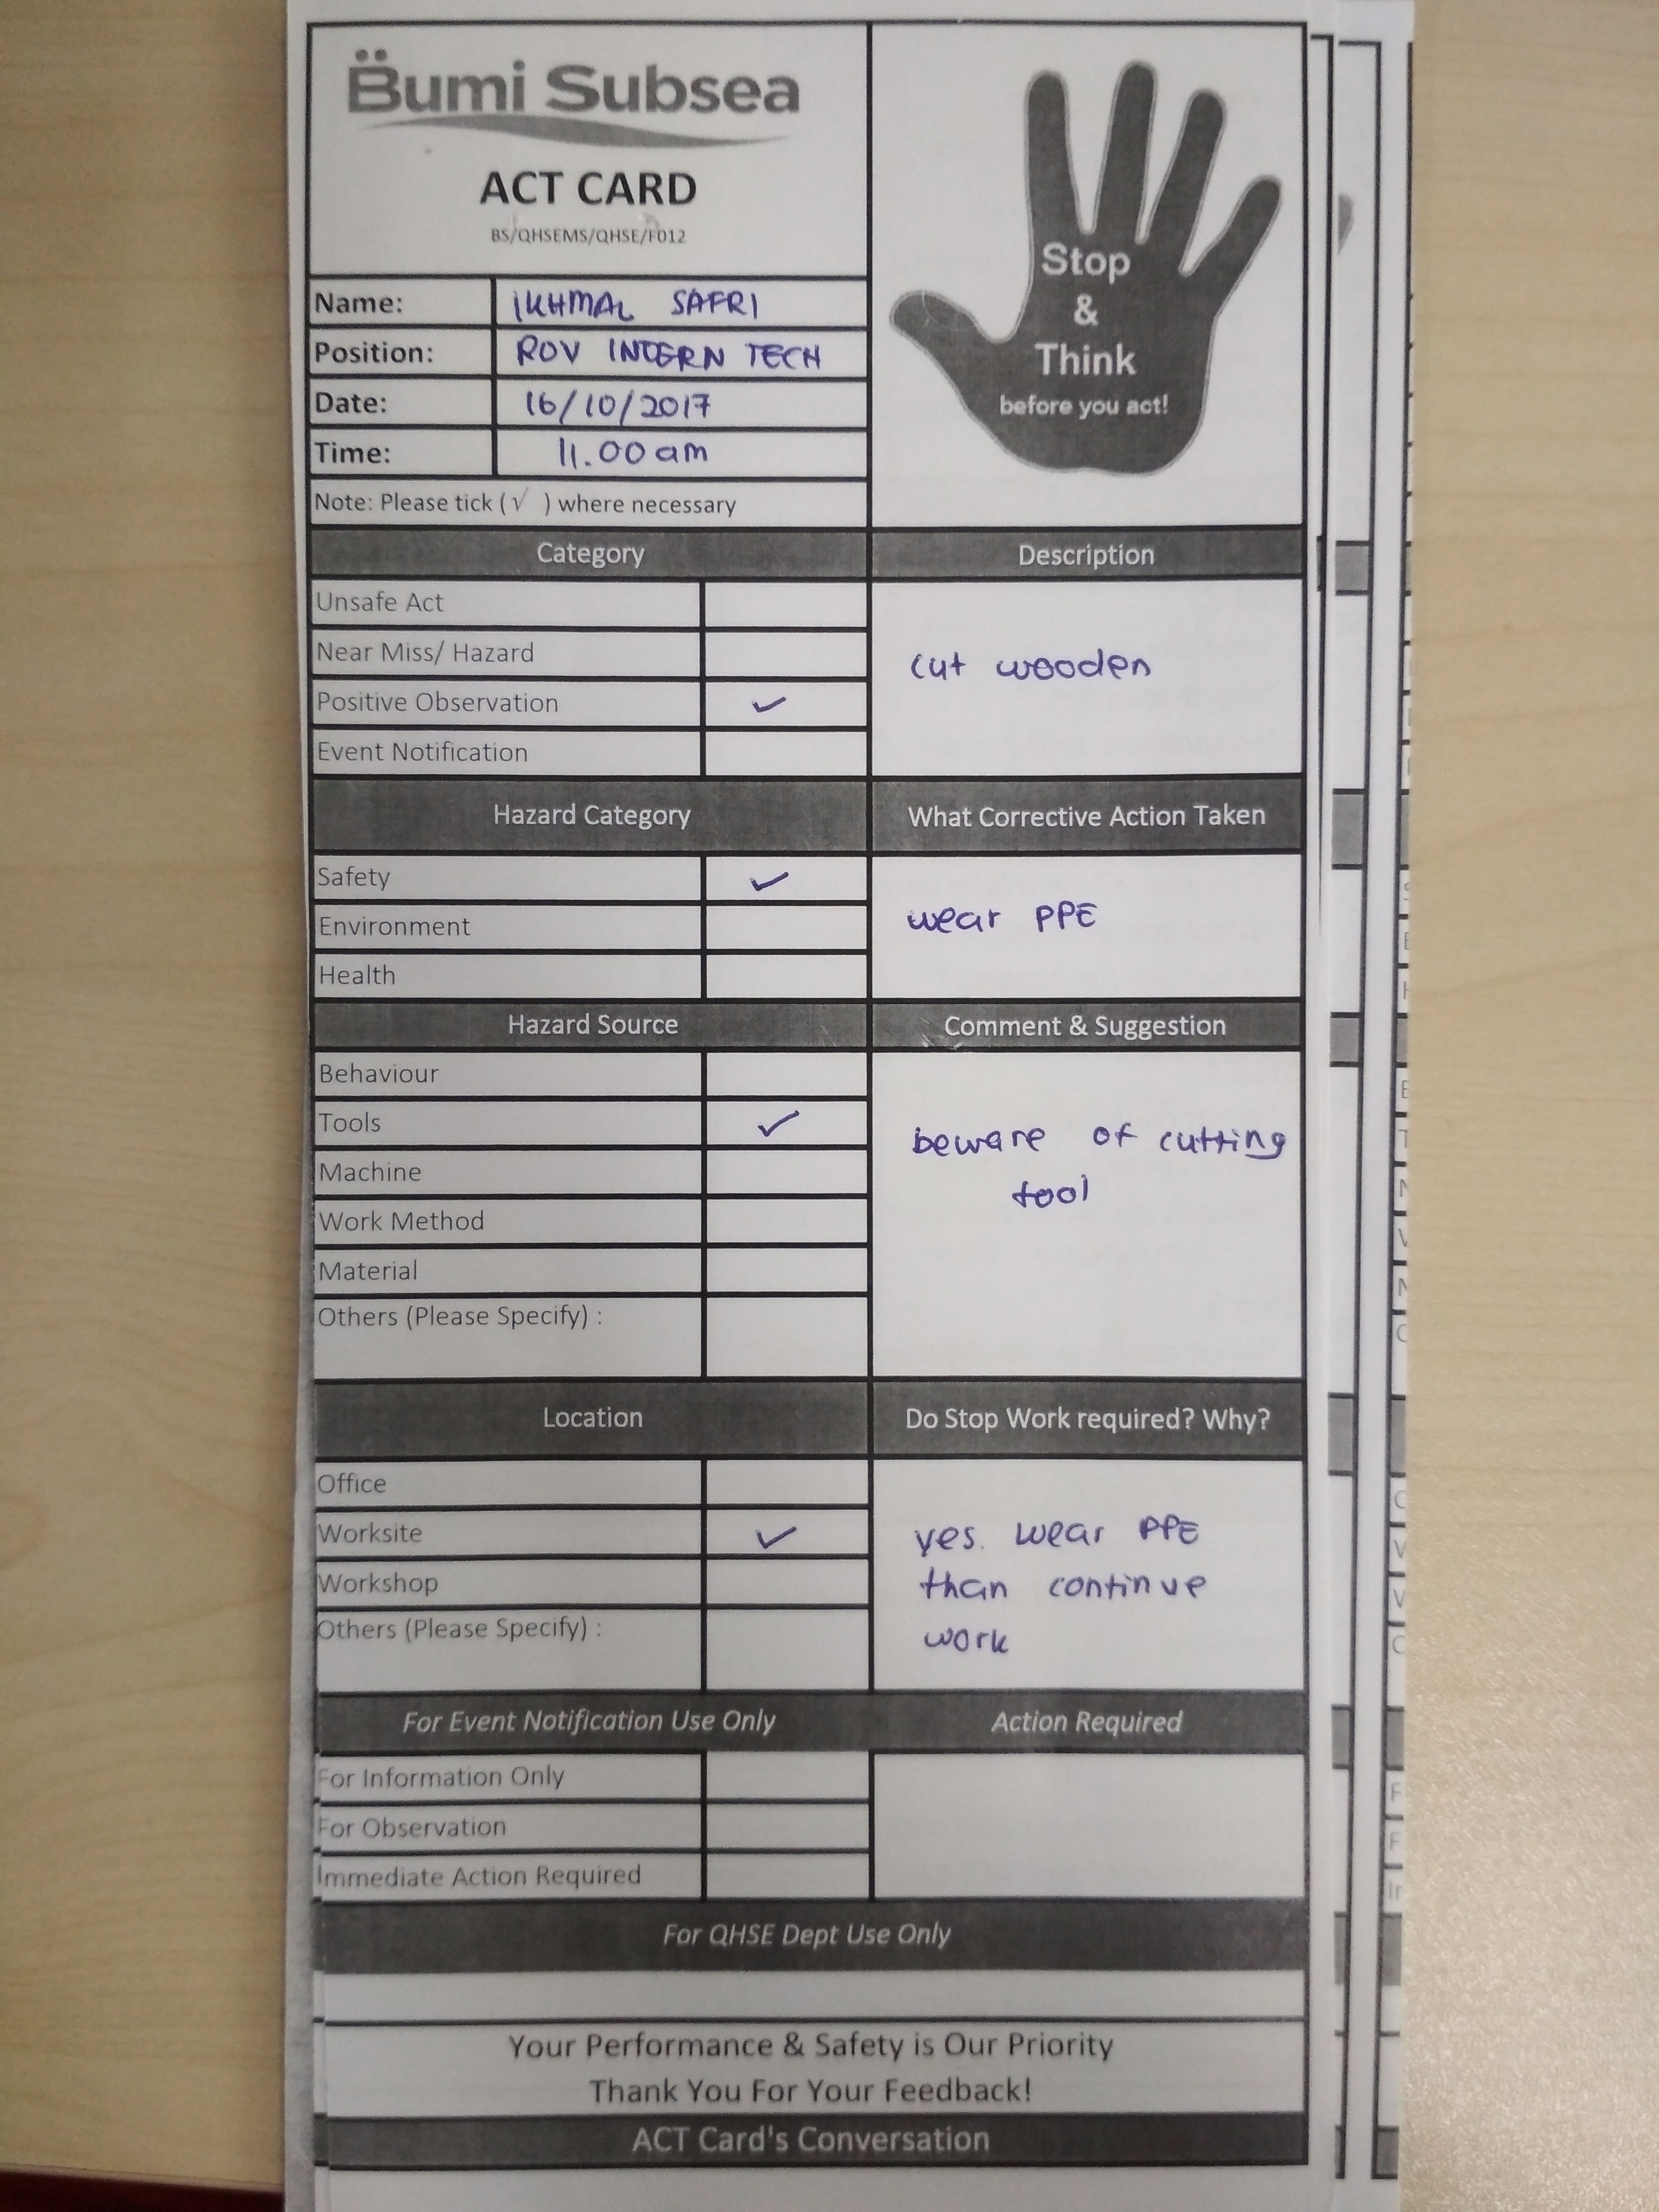 Bumi Subsea
ACT CARD
BS/QHSEMS/QHSE/F012
Stop
&
Think
before you act!
Name: IKHMAL SAFRI
Position: ROV INTERN TECH
Date: 16/10/2017
Time: 11.00 am
Note: Please tick (√ ) where necessary
Category
Description
Unsafe Act
Near Miss/ Hazard
Positive Observation ✓
Event Notification
cut wooden
Hazard Category
What Corrective Action Taken
Safety ✓
Environment
Health
wear PPE
Hazard Source
Comment & Suggestion
Behaviour
Tools ✓
Machine
Work Method
Material
Others (Please Specify) :
beware of cutting
tool
Location
Do Stop Work required? Why?
Office
Worksite ✓
Workshop
Others (Please Specify) :
yes. wear PPE
than continue
work
For Event Notification Use Only
Action Required
For Information Only
For Observation
Immediate Action Required
For QHSE Dept Use Only
Your Performance & Safety is Our Priority
Thank You For Your Feedback!
ACT Card's Conversation